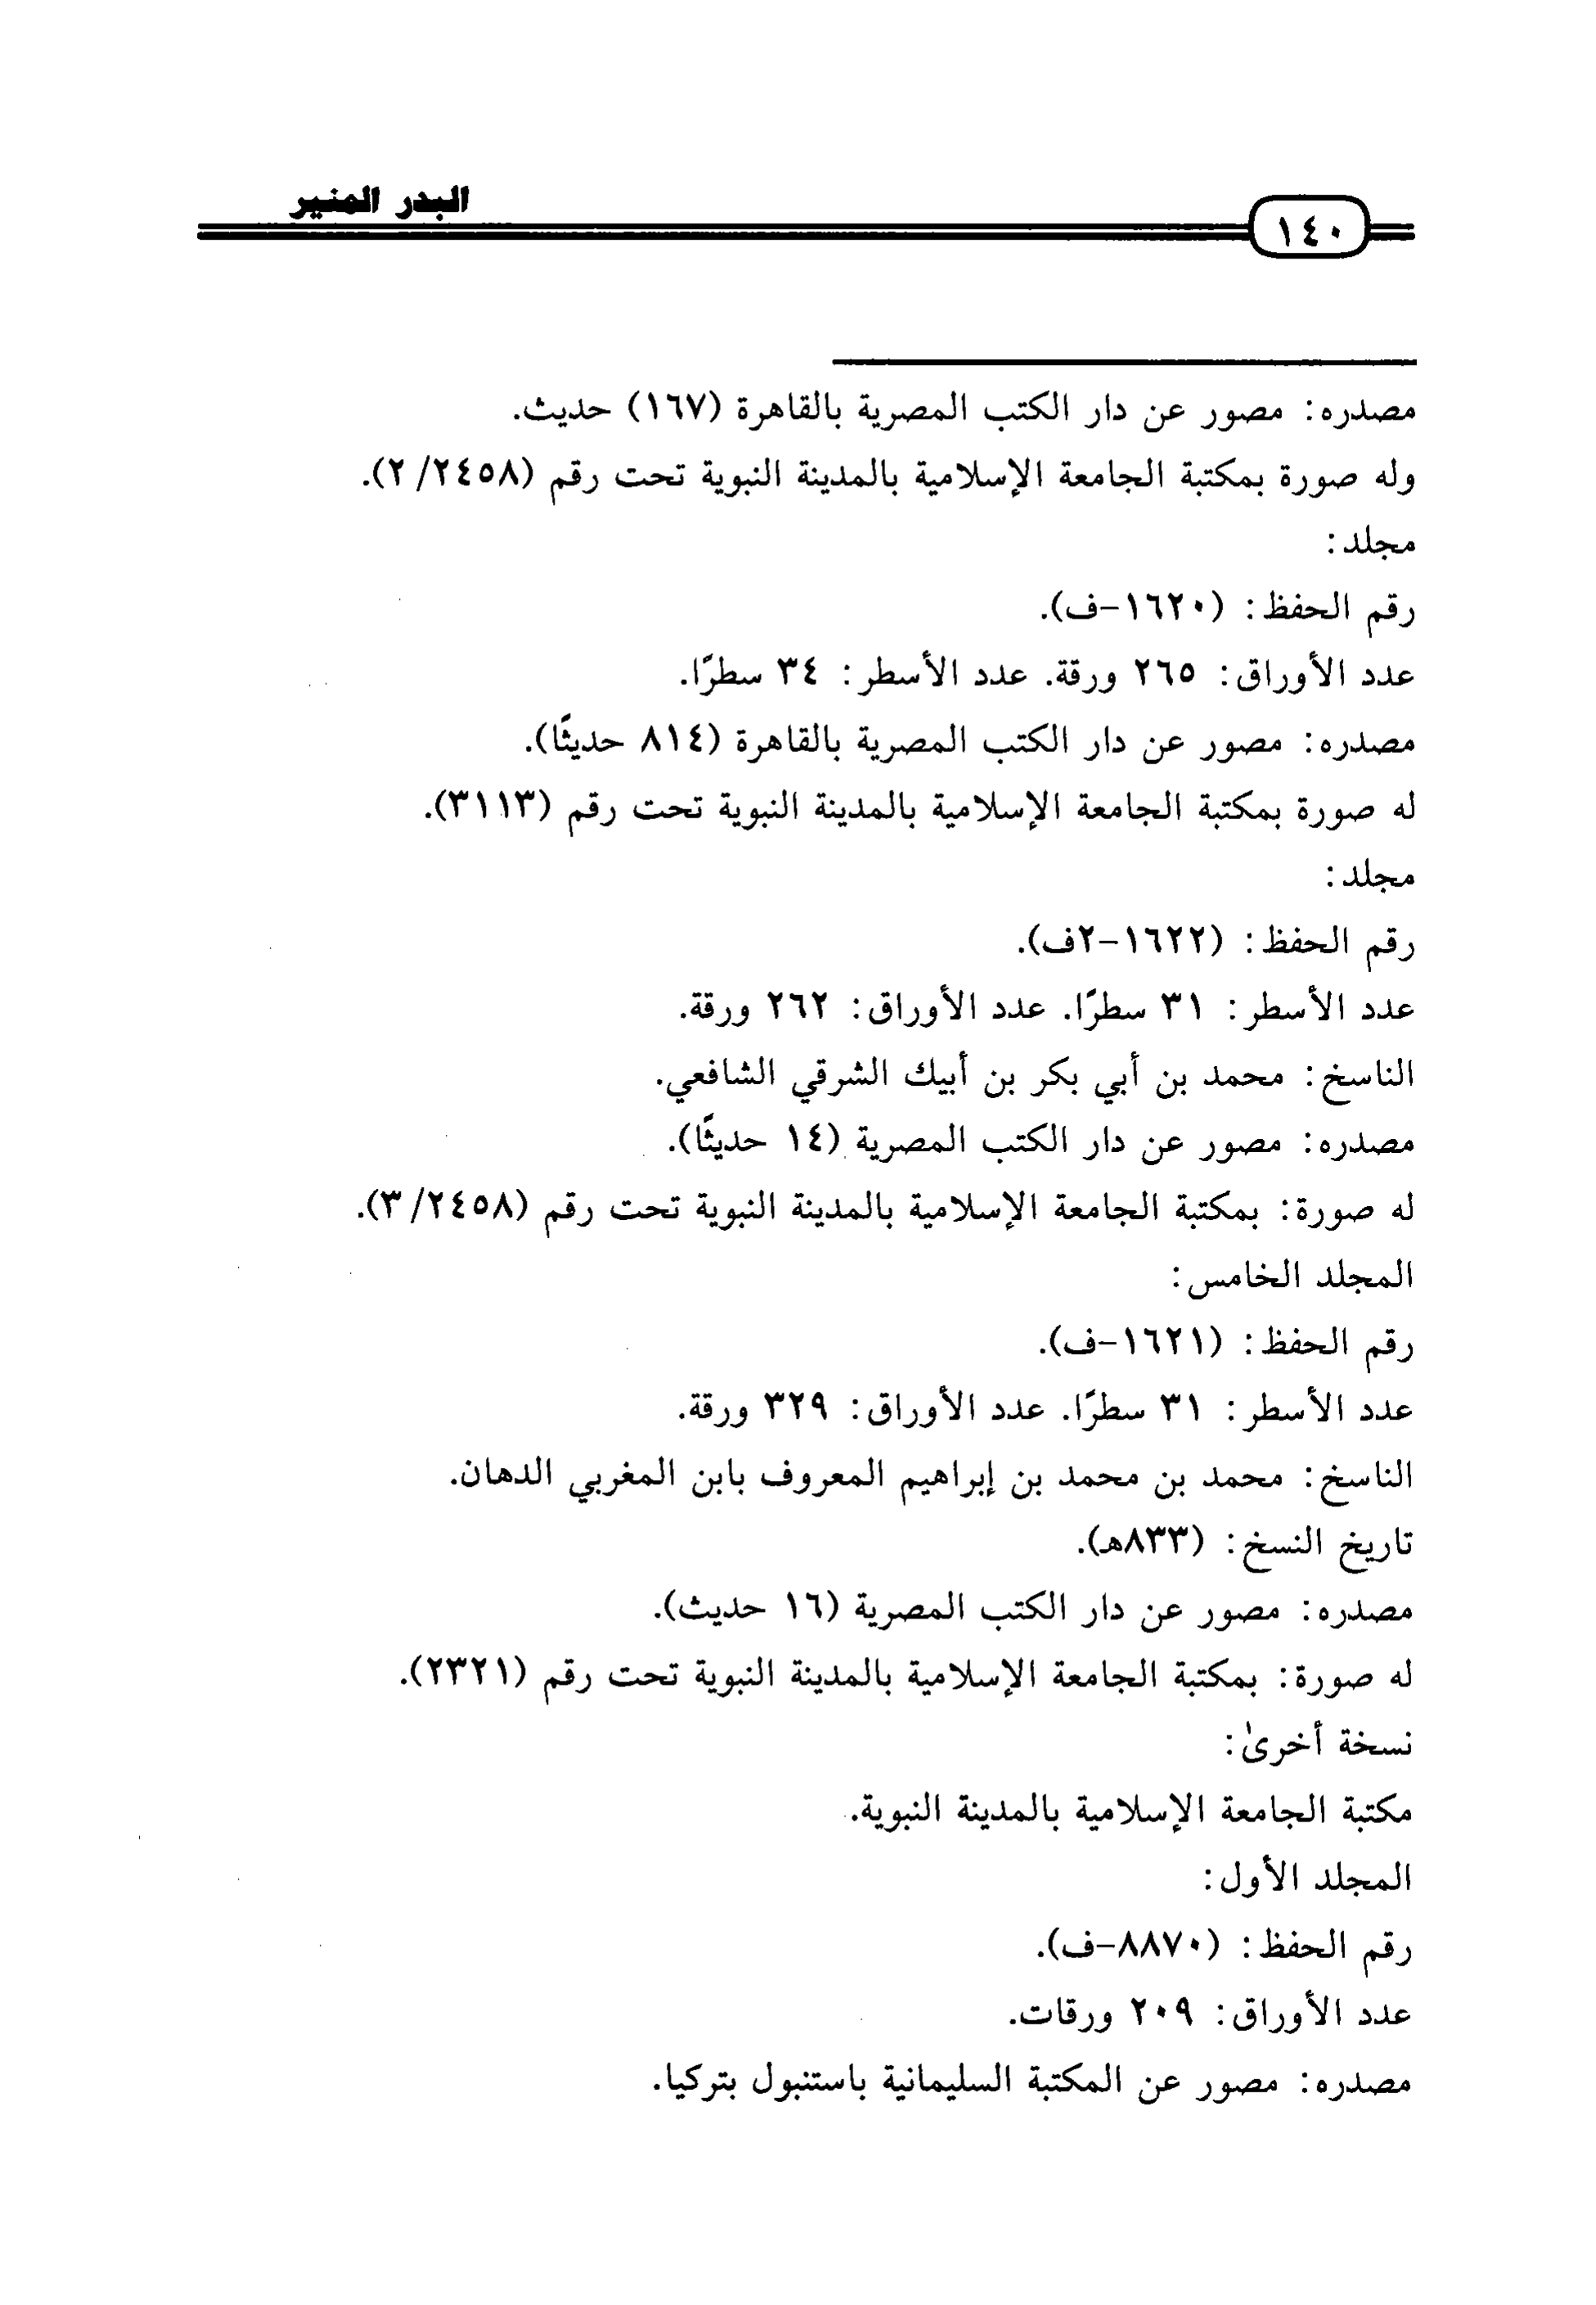 البدر المنير
١٤٠
مصدره: مصور عن دار الكتب المصرية بالقاهرة (١٦٧) حديث.
وله صورة بمكتبة الجامعة الإسلامية بالمدينة النبوية تحت رقم (٢/٢٤٥٨).
مجلد:
رقم الحفظ: (١٦٢٠-ف).
عدد الأوراق: ٢٦٥ ورقة. عدد الأسطر: ٣٤ سطرًا.
مصدره: مصور عن دار الكتب المصرية بالقاهرة (٨١٤ حديثًا).
له صورة بمكتبة الجامعة الإسلامية بالمدينة النبوية تحت رقم (٣١١٣).
مجلد:
رقم الحفظ: (١٦٢٢-٢ف).
عدد الأسطر: ٣١ سطرًا. عدد الأوراق: ٢٦٢ ورقة.
الناسخ: محمد بن أبي بكر بن أبيك الشرقي الشافعي.
مصدره: مصور عن دار الكتب المصرية (١٤ حديثًا).
له صورة: بمكتبة الجامعة الإسلامية بالمدينة النبوية تحت رقم (٣/٢٤٥٨).
المجلد الخامس:
رقم الحفظ: (١٦٢١-ف).
عدد الأسطر: ٣١ سطرًا. عدد الأوراق: ٣٢٩ ورقة.
الناسخ: محمد بن محمد بن إبراهيم المعروف بابن المغربي الدهان.
تاريخ النسخ: (٨٣٣هـ).
مصدره: مصور عن دار الكتب المصرية (١٦ حديث).
له صورة: بمكتبة الجامعة الإسلامية بالمدينة النبوية تحت رقم (٢٣٢١).
نسخة أخرىٰ:
مكتبة الجامعة الإسلامية بالمدينة النبوية.
المجلد الأول:
رقم الحفظ: (٨٨٧٠-ف).
عدد الأوراق: ٢٠٩ ورقات.
مصدره: مصور عن المكتبة السليمانية باستنبول بتركيا.